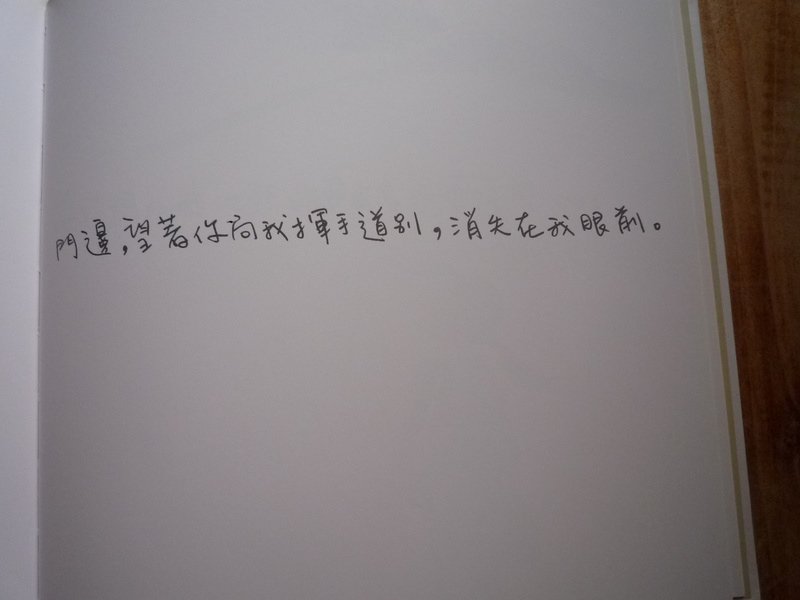 門邊,望著你向我揮手道別,消失在我眼前。